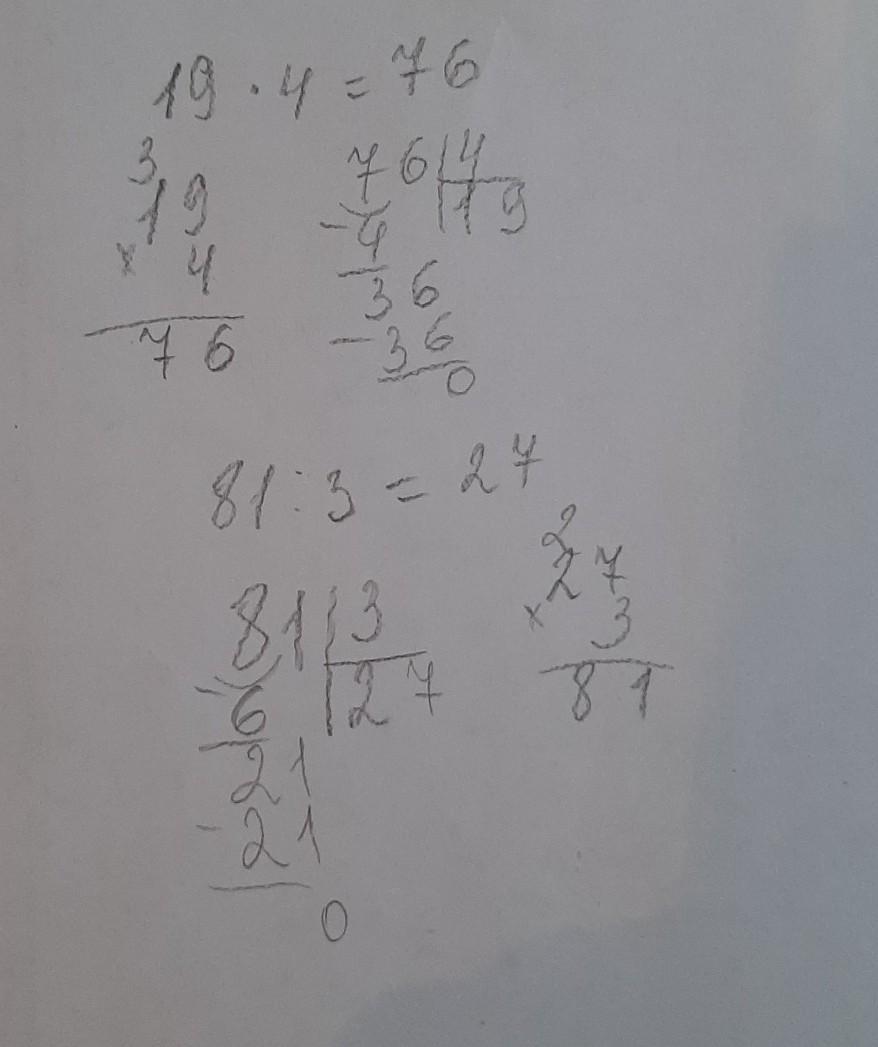 19 · 4 = 76
3
19
× 4
76
76 | 4
- 4 | 19
36
- 36
0
81 : 3 = 27
81 | 3
- 6 | 27
21
- 21
0
2
27
× 3
81